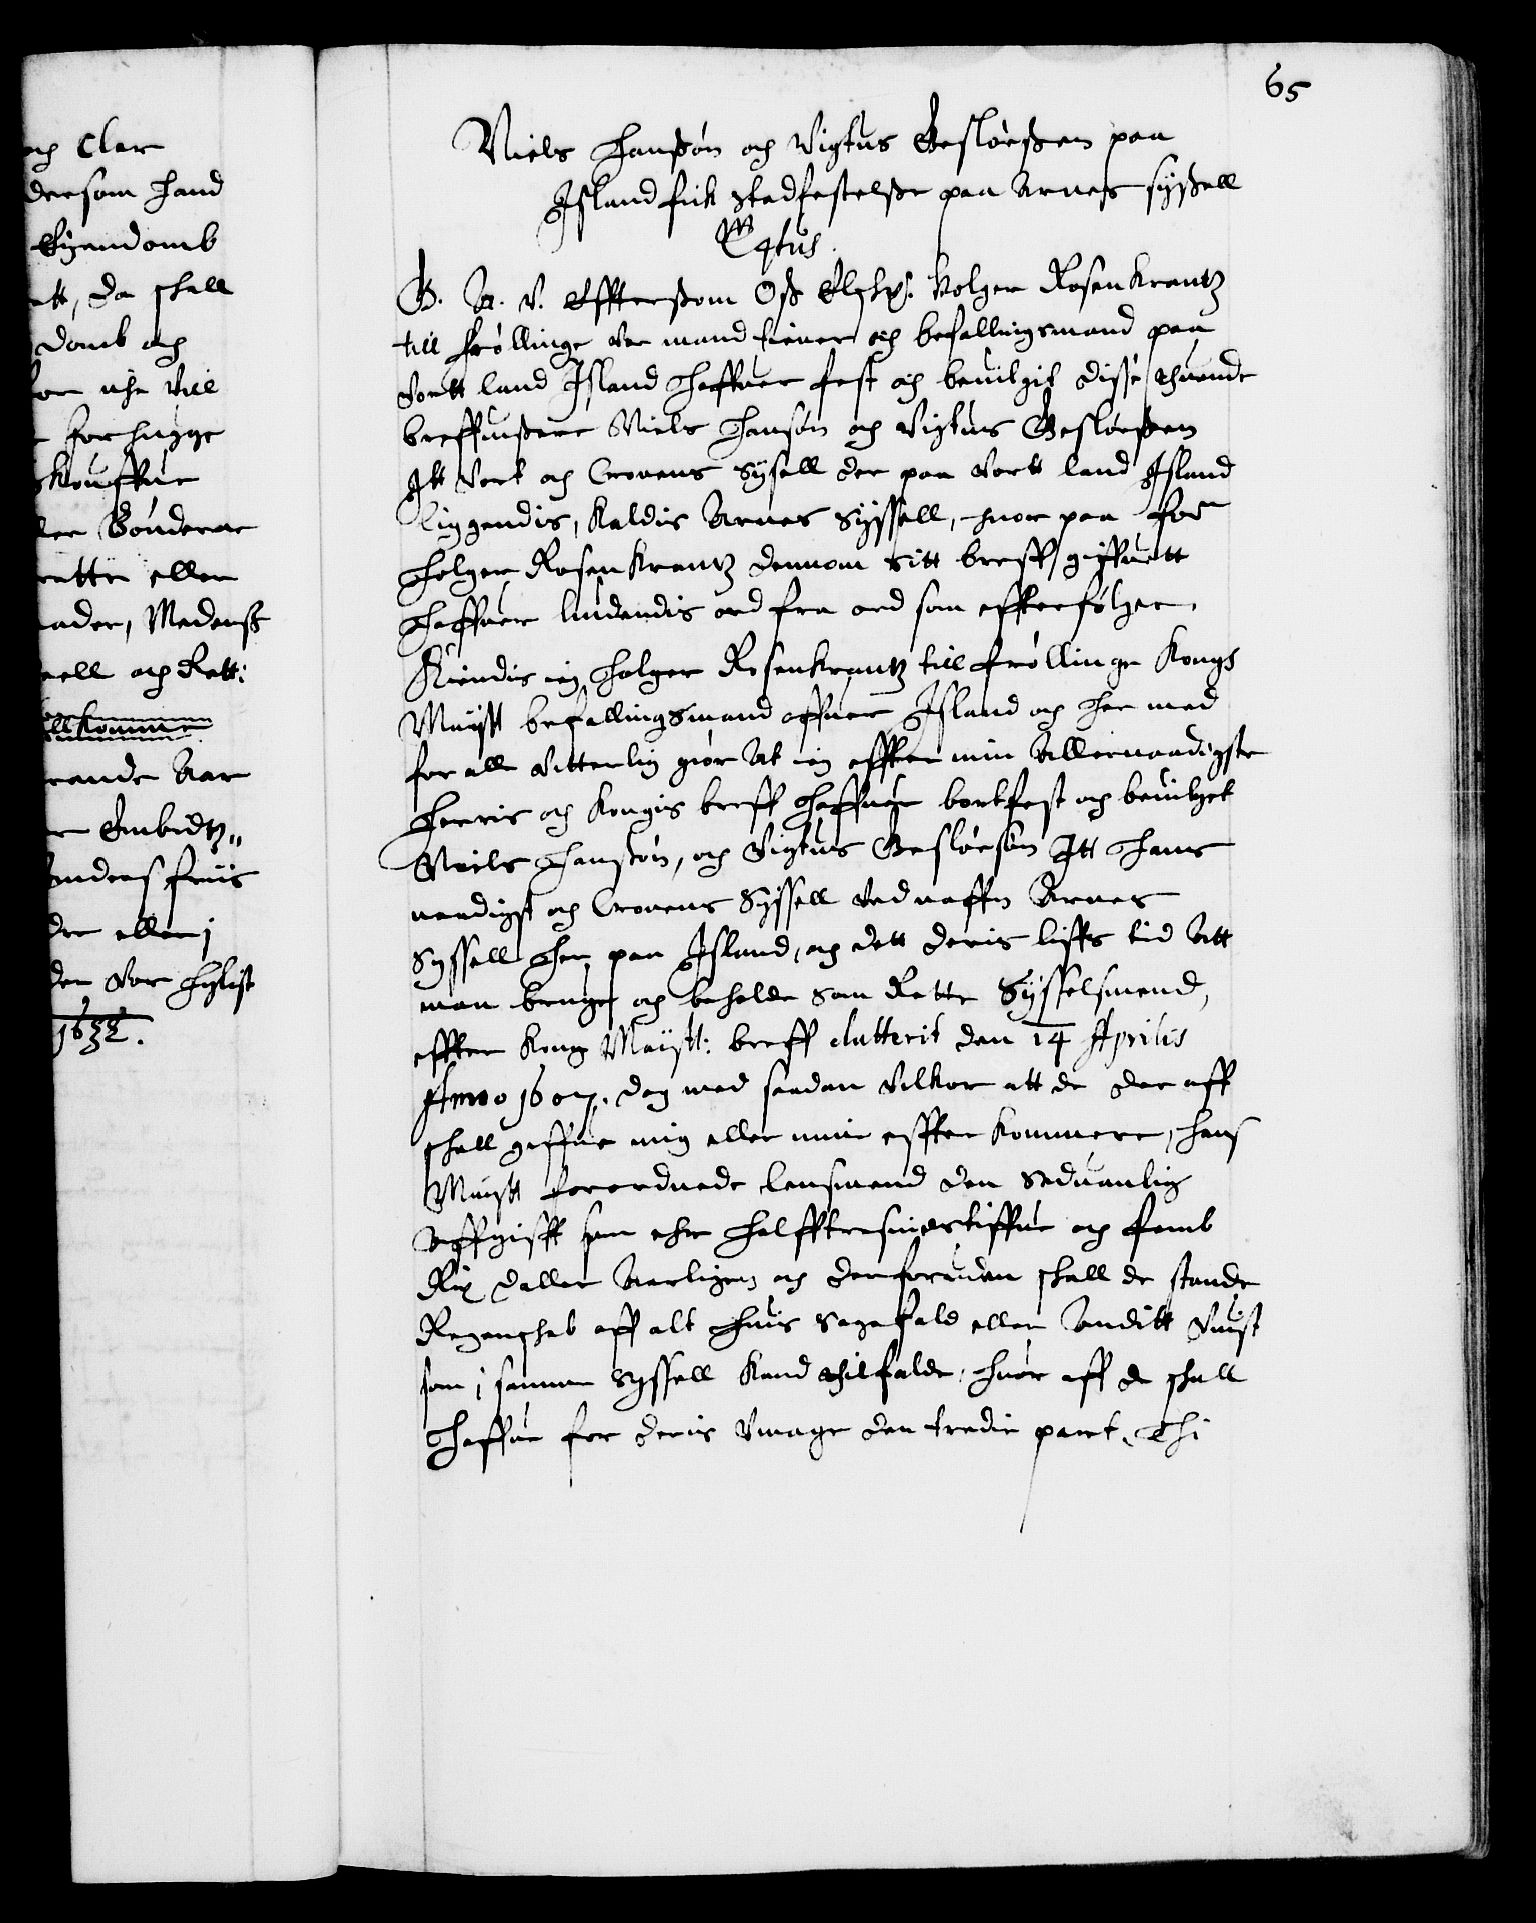 65
och Clar
dersom hand
Eyendomb
ett, da schall
domb och
for uhe vill
forhugge
skouffue
ler Bønderne
rette eller
ader, Medenß
sell och Rett:
llkomme
rende Aar
Embedtz
Anders friis
der eller i
den Vor Høiste
1632.
Niels Hanßøn och Vigtus Gesløeßen paa
Island fick stadfestelße paa Arnes syßell
C4tus.
G. A. V. Effterßom Oß Elskel. Holger Rosenkrantz
till Frøllinge vor mand tiener och befallingsmand paa
Vortt land Island haffuer fest och beuilgit disse thuende
breffuißere Niels Hansøn och Vigtus Gesløeßen
Itt Vort och Cronens Sysell der paa Vortt land Island
liggendis, kaldis Arnes Syssell, huor paa for
Holger Rosenkrantz dennom Sitt breff giffuett
haffuer liudendis ord fra ord som effterfølger.
Kiendis ieg Holger Rosenkrantz till Frøllinge Kongl
Maiestt befallingsmand offuer Island och her med
for alle Vitterlig giør At ieg effter min Allernaadigste
Herris och Kongis breff haffuer bortfest och beuilget
Neils Hanßøn, och Vigtus Gesløesøn Itt Hans
naadigst och Cronens Syssell Ved naffn Arnes
Syssell her paa Island, och dett deris liffs tid Att
maa bruge och beholde som Rette Sysselsmend,
effter Kong Maiestt: breff datterit den 14 Aprilis
Anno 1607. dog med saadan Vilkor att de der aff
schall giffue mig eller mine effter kommere, Hans
Maiestt forordnede lensmend den Seduanlig
Affgifft som ehr halfftresindstiffue och femb
Rix daller Aarligen och der foruden schall de stande
Regenschab aff alt Huis Sagefald eller Anditt Vuist
som i samme Syssell kand thilfalde, huor aff de schall
haffue for deris Vmage den tredie part. Thi